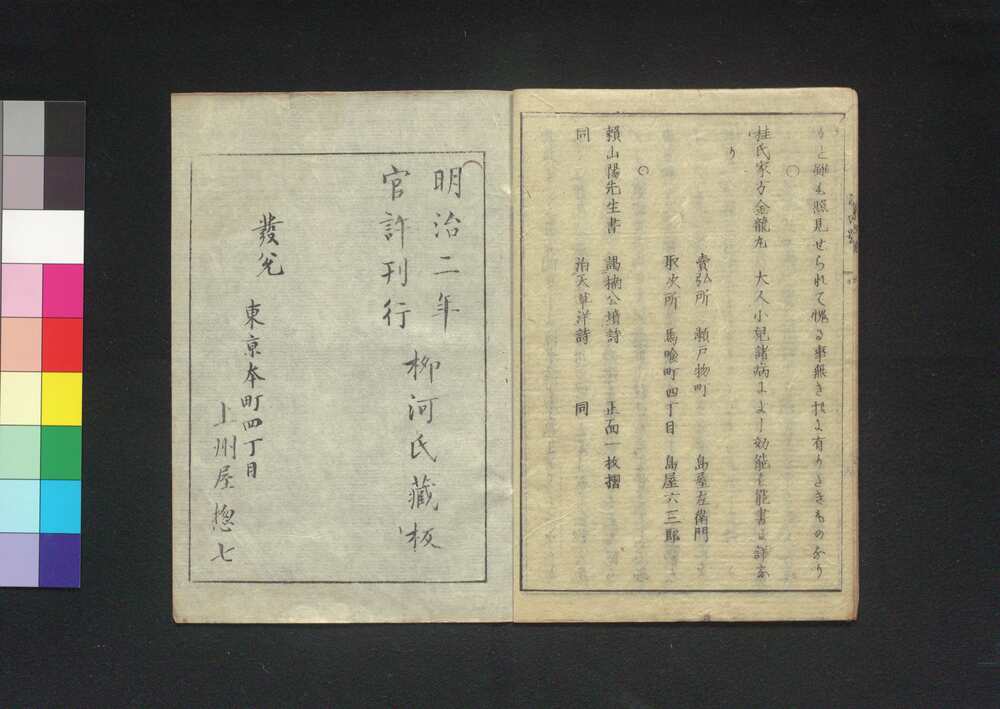 と雖も照見せられて愧る事無き様に有りたきものなり
○
桂氏家方金龍丸 大人小兒諸病によし効能は能書に詳な
り
賣弘所 瀬戸物町 島屋左衛門
取次所 馬喰町四丁目 島屋六三郎
○
頼山陽先生書 謁楠公墳詩 正面一枚摺
同 泊天草洋詩 同
明治二年
官許刊行 柳河氏藏板
發兌 東京本町四丁目
上州屋惣七